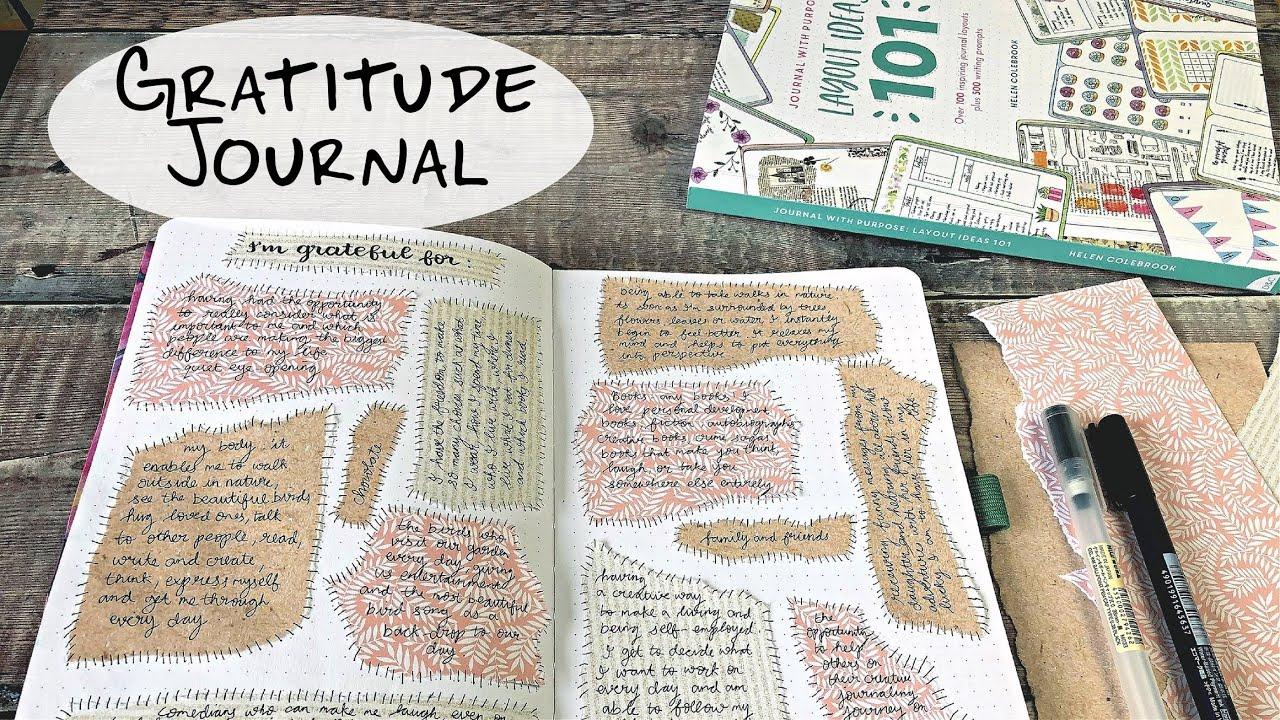 GRATITUDE
JOURNAL
JOURNAL WITH PURPOSE
LAYOUT IDEAS
101
Over 100 inspiring journal layouts
plus 500 writing prompts
HELEN COLEBROOK
JOURNAL WITH PURPOSE: LAYOUT IDEAS 101
HELEN COLEBROOK
I'm grateful for:
having had the opportunity
to really consider what is
important to me and which
people are making the biggest
difference to my life
- quiet eye opening
I have the freedom to make
so many choices, such as what
I want, how I wear my hair,
who I live with, where I
live, what I do
and which books I read
my body, it
enables me to walk
outside in nature,
see the beautiful birds
hug loved ones, talk
to other people, read,
write and create,
think, express myself
and get me through
every day
chocolate
the birds who
visit our garden
every day giving
us entertainment
and the most beautiful
bird song as a
back-drop to our
day
comedians who can make me laugh even on
being able to take walks in nature
as soon as I'm surrounded by trees
flowers leaves or water I instantly
begin to feel better it relaxes my
mind and helps to put everything
into perspective
Books any books! I
love personal development
books, fiction, autobiographies,
creative books, crime sagas,
books that make you think,
laugh or take you
somewhere else entirely
receiving funny messages from my
daughter and her
adventures with
lucky I am to have her in my life
family and friends
having
a creative way
to make a living and
being self-employed
I get to decide what
I want to work on
every day and am
able to follow my
the
opportunity
to help
others on
their creative
journaling
journey
4901991645637